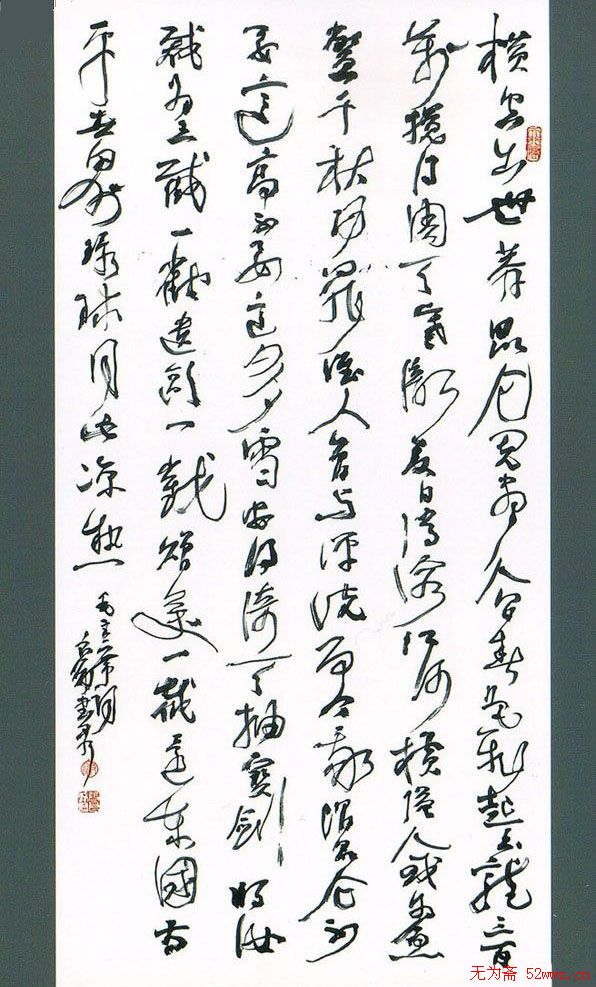 横空出世莽昆仑阅尽人间春色飛起玉龍三百
萬攪得周天寒彻夏日消溶江河横溢人或为鱼
鳖千秋功罪谁人曾与评说而今我谓昆仑不
要这高不要这多雪安得倚天抽寶劍把汝
裁为三截一截遗欧一截贈美一截还东國太
平世界环球同此凉热
毛主席词
无为斋 52wwz.cn